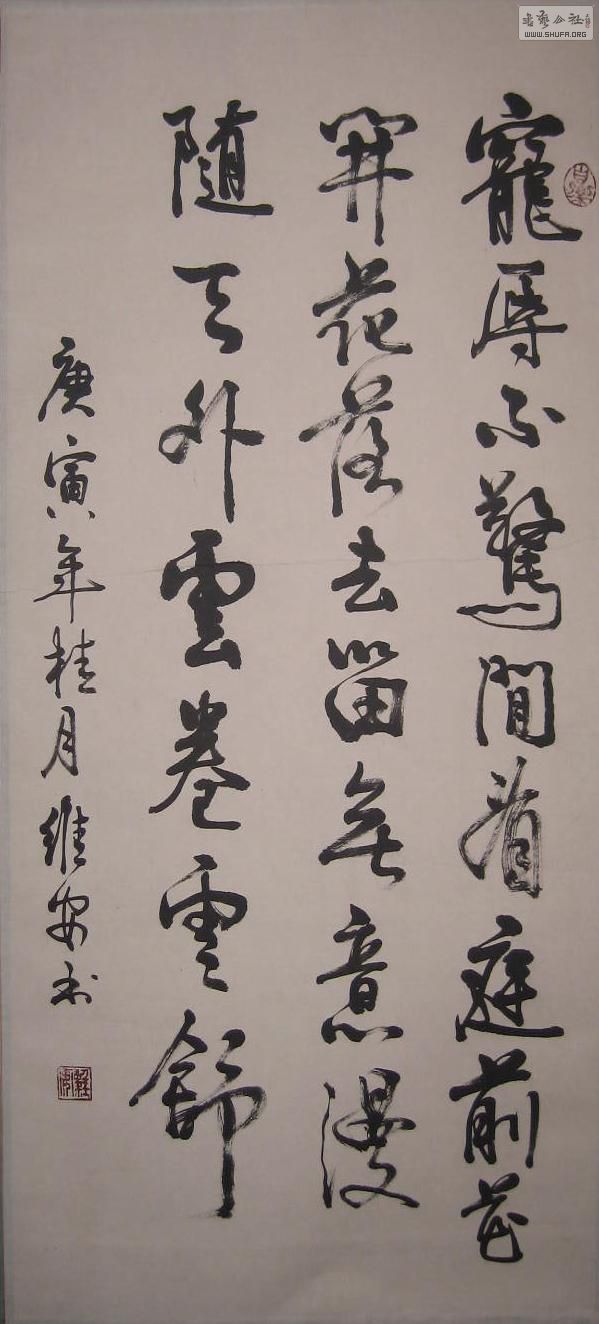 寵辱不驚閒看庭前花
開花落去留無意漫
隨天外雲卷雲舒
庚寅年桂月維安书
WWW.SHUFA.ORG